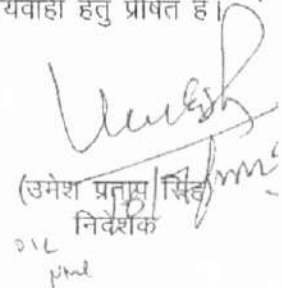 यवाही हेतु प्रेषित है।
Umesh
(उमेश प्रताप सिंह)
निदेशक